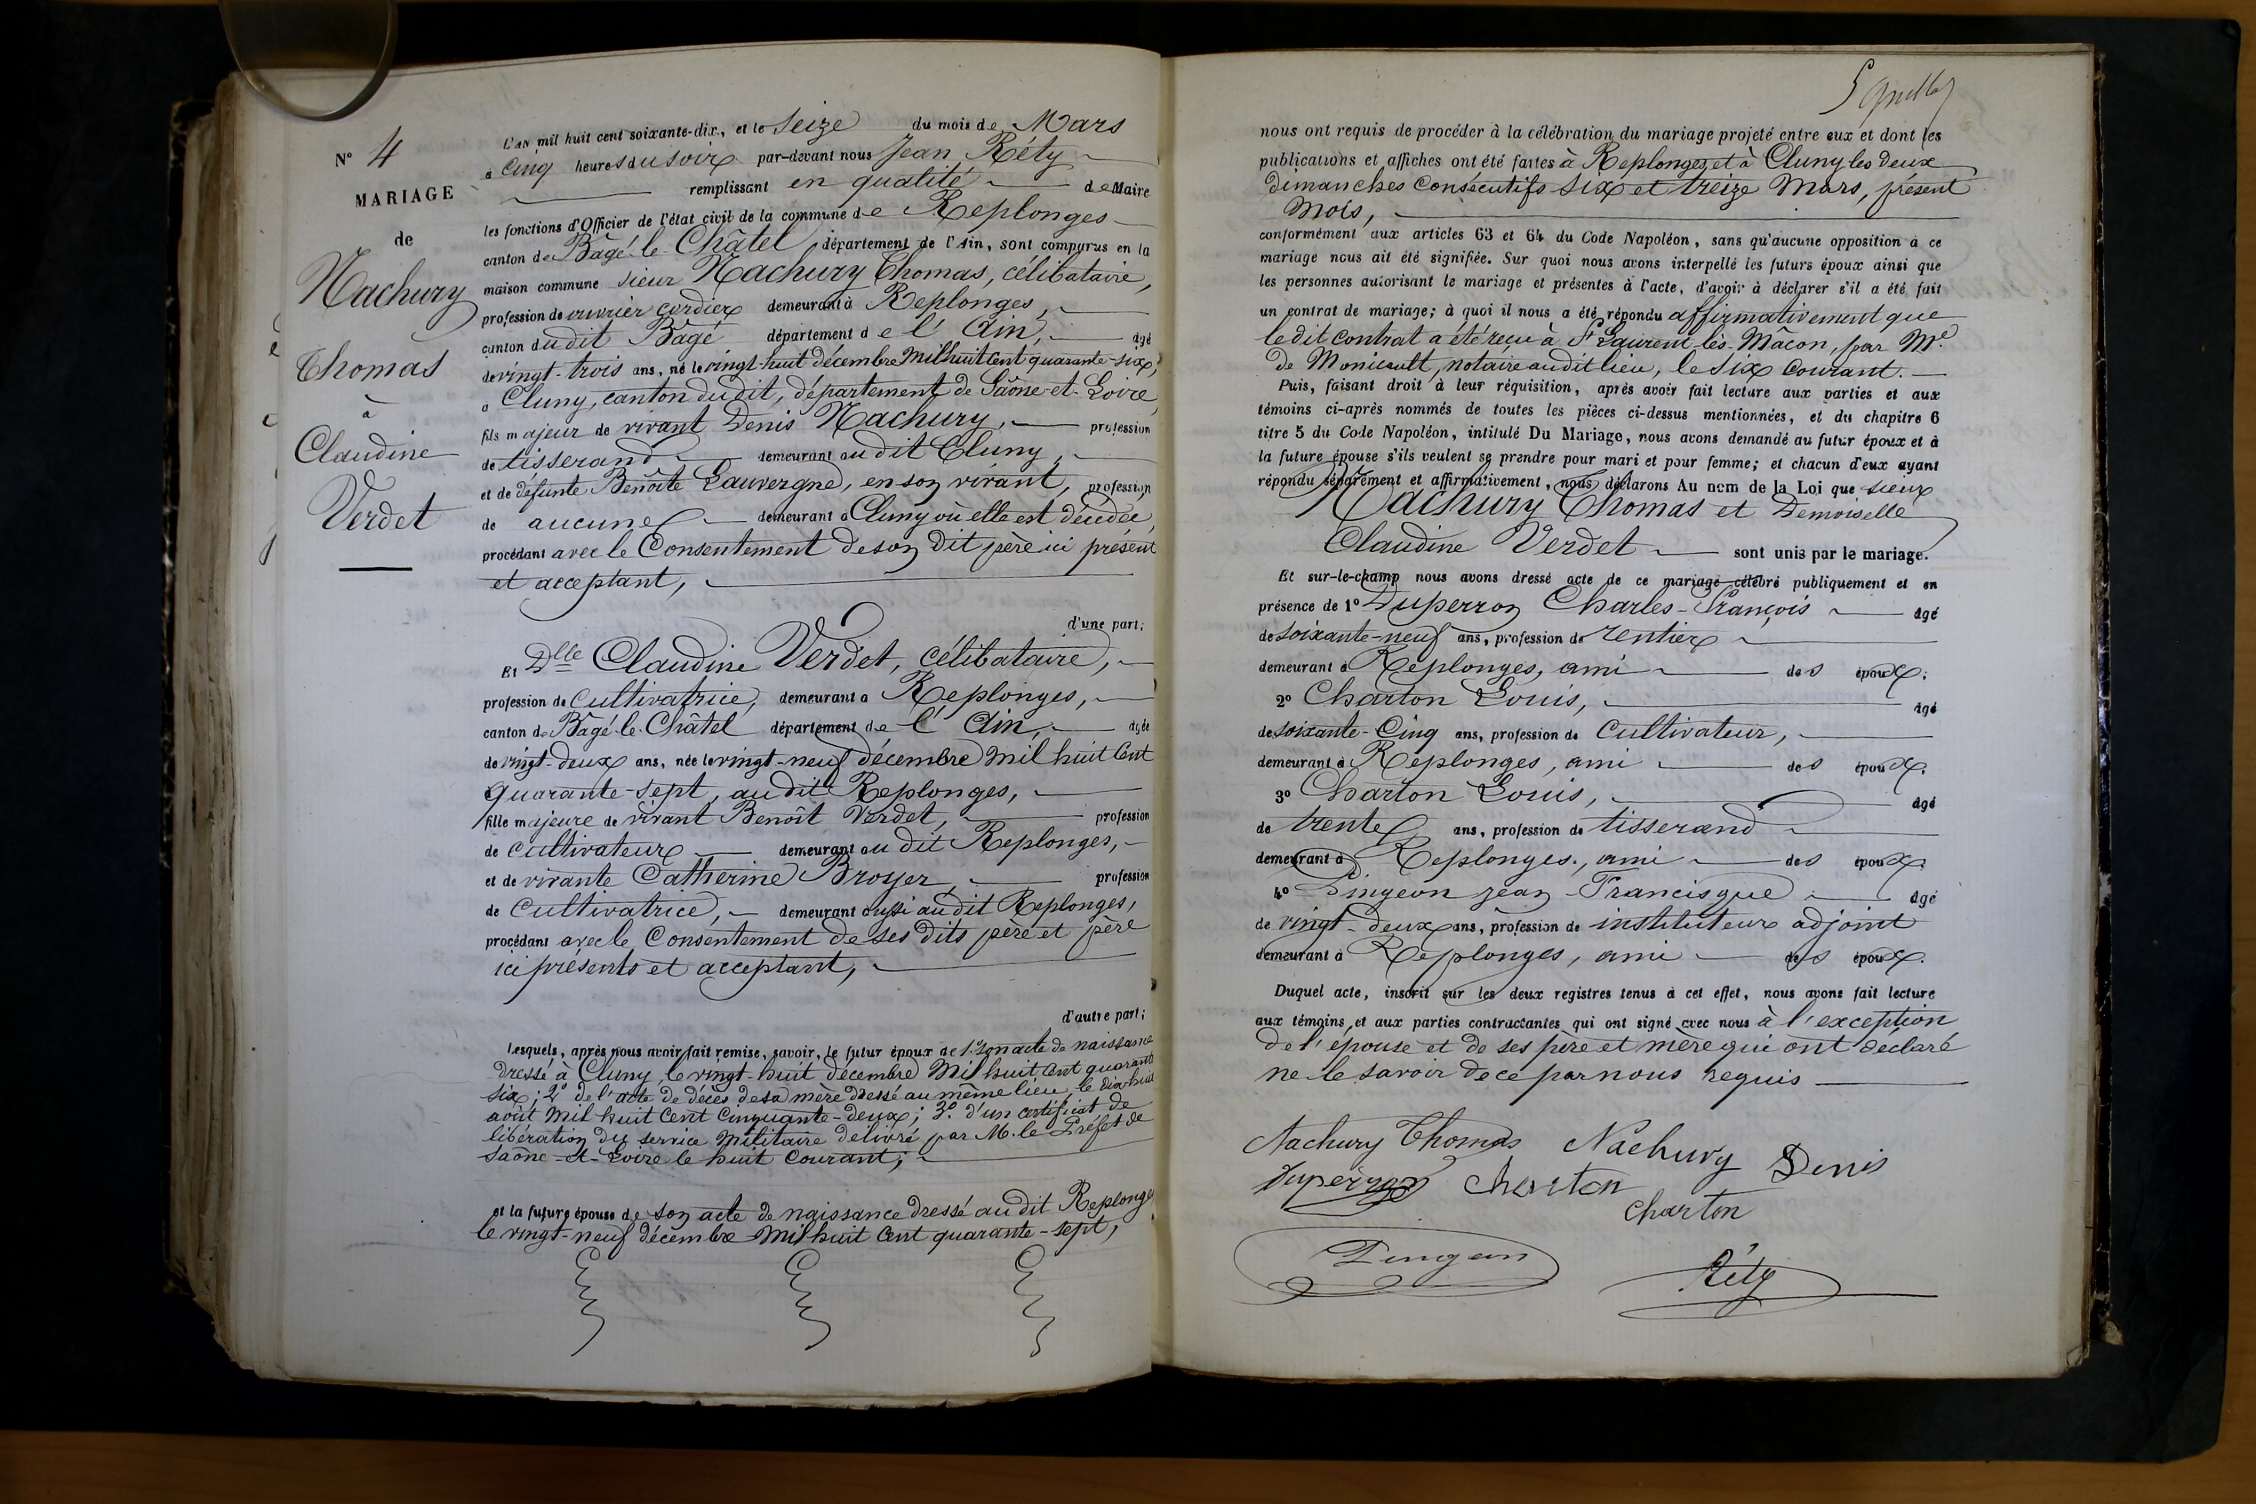 N° 4
MARIAGE
de
Nachury
Thomas
à
Claudine
Verdet
L'AN mil huit cent soixante-dix, et le seize du mois de Mars
à Cinq heures du soir par-devant nous Jean Réty
remplissant en qualité de Maire
les fonctions d'Officier de l'état civil de la commune de Replonges
canton de Bâgé-le-Châtel, département de l'Ain, sont comparus en la
maison commune sieur Nachury Thomas, célibataire,
profession de ouvrier cordier demeurant à Replonges,
canton dudit Bâgé département de l'Ain, âgé
de vingt-trois ans, né le vingt-huit décembre mil huit cent quarante-six,
à Cluny, canton dudit, département de Saône-et-Loire,
fils majeur de vivant Denis Nachury, profession
de tisserand demeurant audit Cluny,
et de défunte Benoîte Lauvergne, en son vivant, profession
de aucune demeurant à Cluny où elle est décédée,
procédant avec le Consentement de son dit père ici présent
et acceptant,
d'une part;
Et Dlle Claudine Verdet, célibataire,
profession de cultivatrice, demeurant à Replonges,
canton de Bâgé-le-Châtel département de l'Ain, âgée
de vingt-deux ans, née le vingt-neuf décembre mil huit Cent
quarante-sept, audit Replonges,
fille majeure de vivant Benoît Verdet, profession
de cultivateur demeurant audit Replonges,
et de vivante Catherine Broyer, profession
de cultivatrice, demeurant aussi audit Replonges,
procédant avec le Consentement de ses dits père et père
ici présents et acceptant,
d'autre part;
Lesquels, après nous avoir fait remise, savoir, le futur époux de 1° son acte de naissance
dressé à Cluny le vingt-huit décembre mil huit cent quarante
six; 2° de l'acte de décès de sa mère dressé au même lieu, le dix-huit
août mil huit cent cinquante-deux; 3° d'un certificat de
libération du service militaire délivré par M. le Préfet de
Saône-et-Loire le huit courant;
et la future épouse de son acte de naissance dressé audit Replonges
le vingt-neuf décembre mil huit cent quarante-sept,
nous ont requis de procéder à la célébration du mariage projeté entre eux et dont les
publications et affiches ont été faites à Replonges et à Cluny les deux
dimanches Consécutifs six et treize Mars, présent
mois,
conformément aux articles 63 et 64 du Code Napoléon, sans qu'aucune opposition à ce
mariage nous ait été signifiée. Sur quoi nous avons interpellé les futurs époux ainsi que
les personnes autorisant le mariage et présentes à l'acte, d'avoir à déclarer s'il a été fait
un contrat de mariage; à quoi il nous a été répondu affirmativement que
ledit contrat a été reçu à St Laurent-lès-Mâcon, par Me
de Monicault, notaire audit lieu, le six Courant.
Puis, faisant droit à leur réquisition, après avoir fait lecture aux parties et aux
témoins ci-après nommés de toutes les pièces ci-dessus mentionnées, et du chapitre 6
titre 5 du Code Napoléon, intitulé Du Mariage, nous avons demandé au futur époux et à
la future épouse s'ils veulent se prendre pour mari et pour femme; et chacun d'eux ayant
répondu séparément et affirmativement, nous déclarons Au nom de la Loi que sieur
Nachury Thomas et Demoiselle
Claudine Verdet sont unis par le mariage.
Et sur-le-champ nous avons dressé acte de ce mariage célébré publiquement et en
présence de 1° Duperron Charles-François âgé
de soixante-neuf ans, profession de rentier
demeurant à Replonges, ami des époux;
2° Charton Louis, âgé
de soixante-Cinq ans, profession de Cultivateur,
demeurant à Replonges, ami des époux.
3° Charton Louis, âgé
de trente ans, profession de tisserand
demeurant à Replonges, ami des époux.
4° Pingeon Jean-Francisque âgé
de vingt-deux ans, profession de instituteur adjoint
demeurant à Replonges, ami des époux.
Duquel acte, inscrit sur les deux registres tenus à cet effet, nous avons fait lecture
aux témoins et aux parties contractantes qui ont signé avec nous à l'exception
de l'épouse et de ses père et mère qui ont déclaré
ne le savoir de ce par nous requis
Nachury Thomas Nachury Denis
Duperron Charton
Charton
Pingeon
Réty